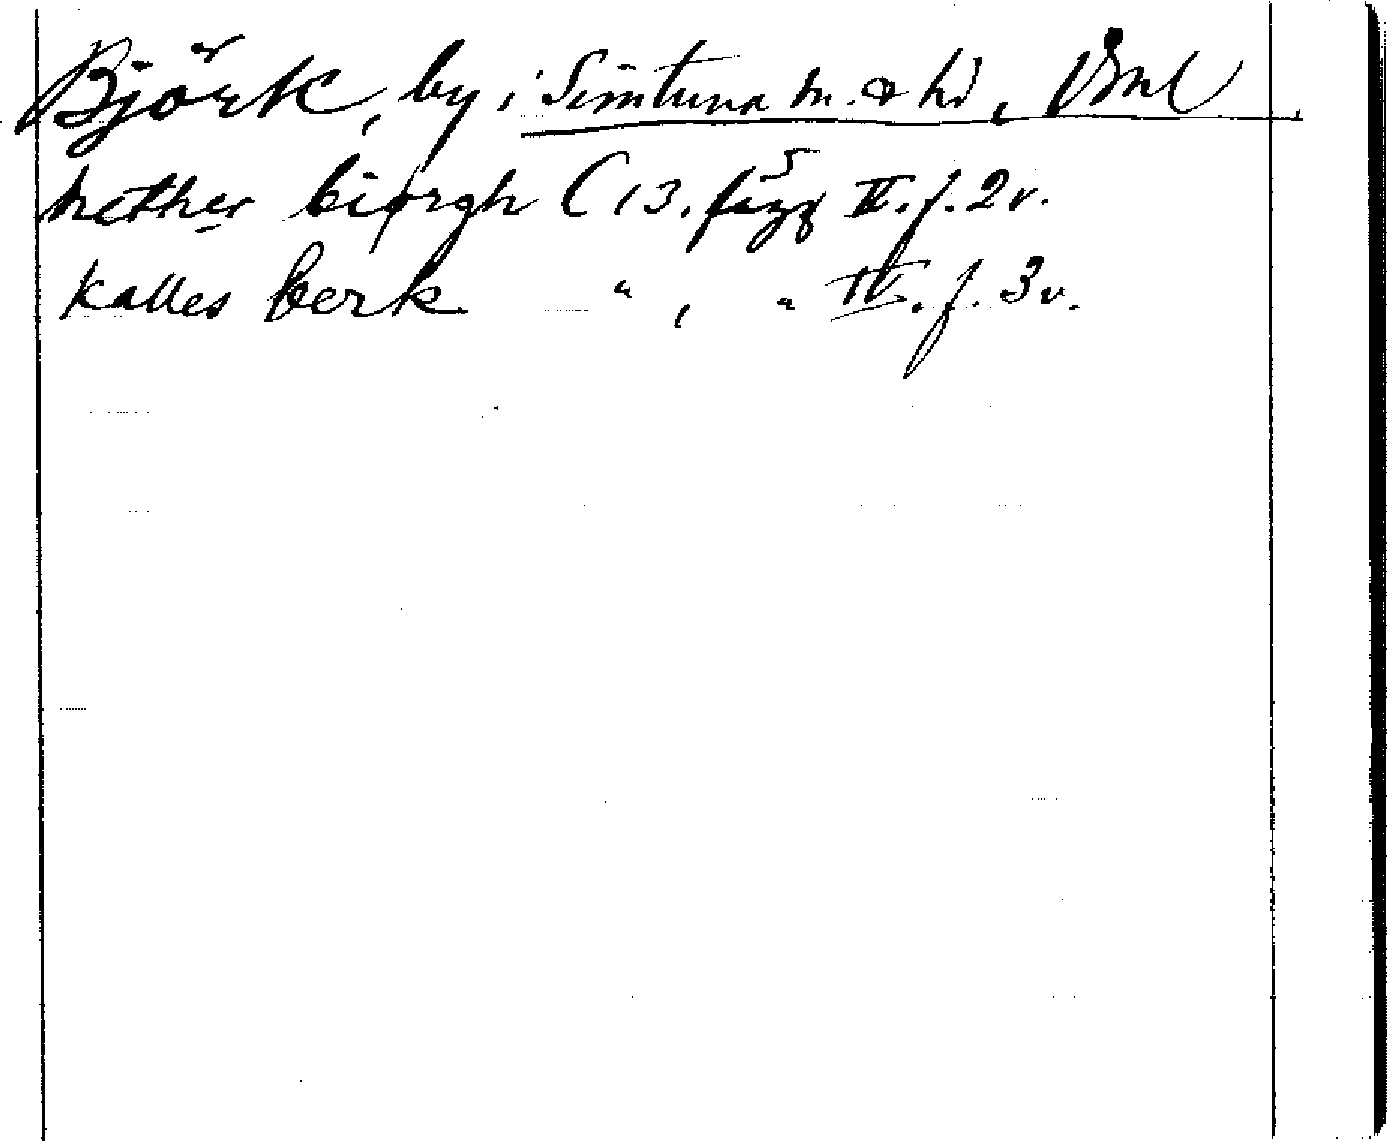 Björk, by i Simtuna sn. o. hd, Vml
nether biørgh C 13. fasz II. f. 2v.
kalles berk " , " IV. f. 3v.